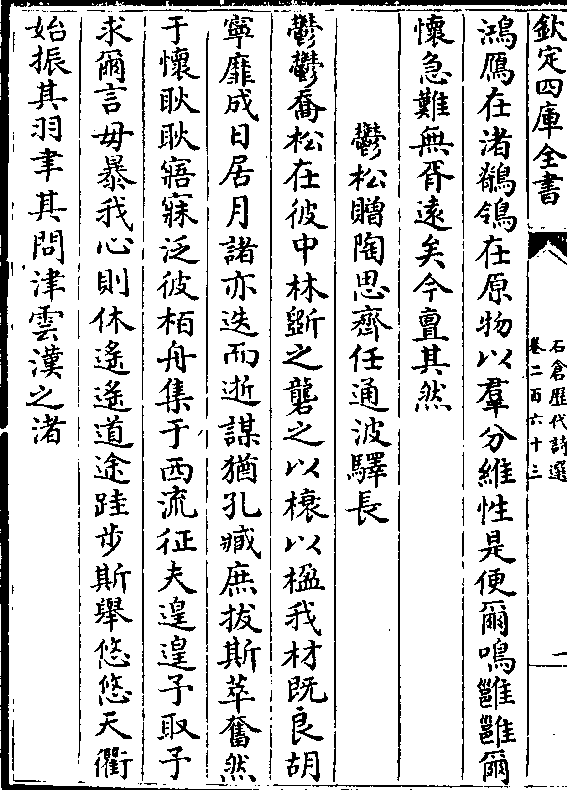 欽定四庫全書
石倉歷代詩選
卷二百六十三
一
鴻鴈在渚鶺鴒在原物以羣分維性是便爾鳴雝雝爾
懷急難無胥遠矣今亶其然
鬱松贈陶思齊任通波驛長
鬱鬱喬松在彼中林斵之礱之以榱以楹我材既良胡
寧靡成日居月諸亦迭而逝謀猶孔臧庶拔斯萃奮然
于懷耿耿寤寐泛彼栢舟集于西流征夫遑遑予取予
求爾言毋暴我心則休遙遙道途跬步斯舉悠悠天衢
始振其羽聿其問津雲漢之渚